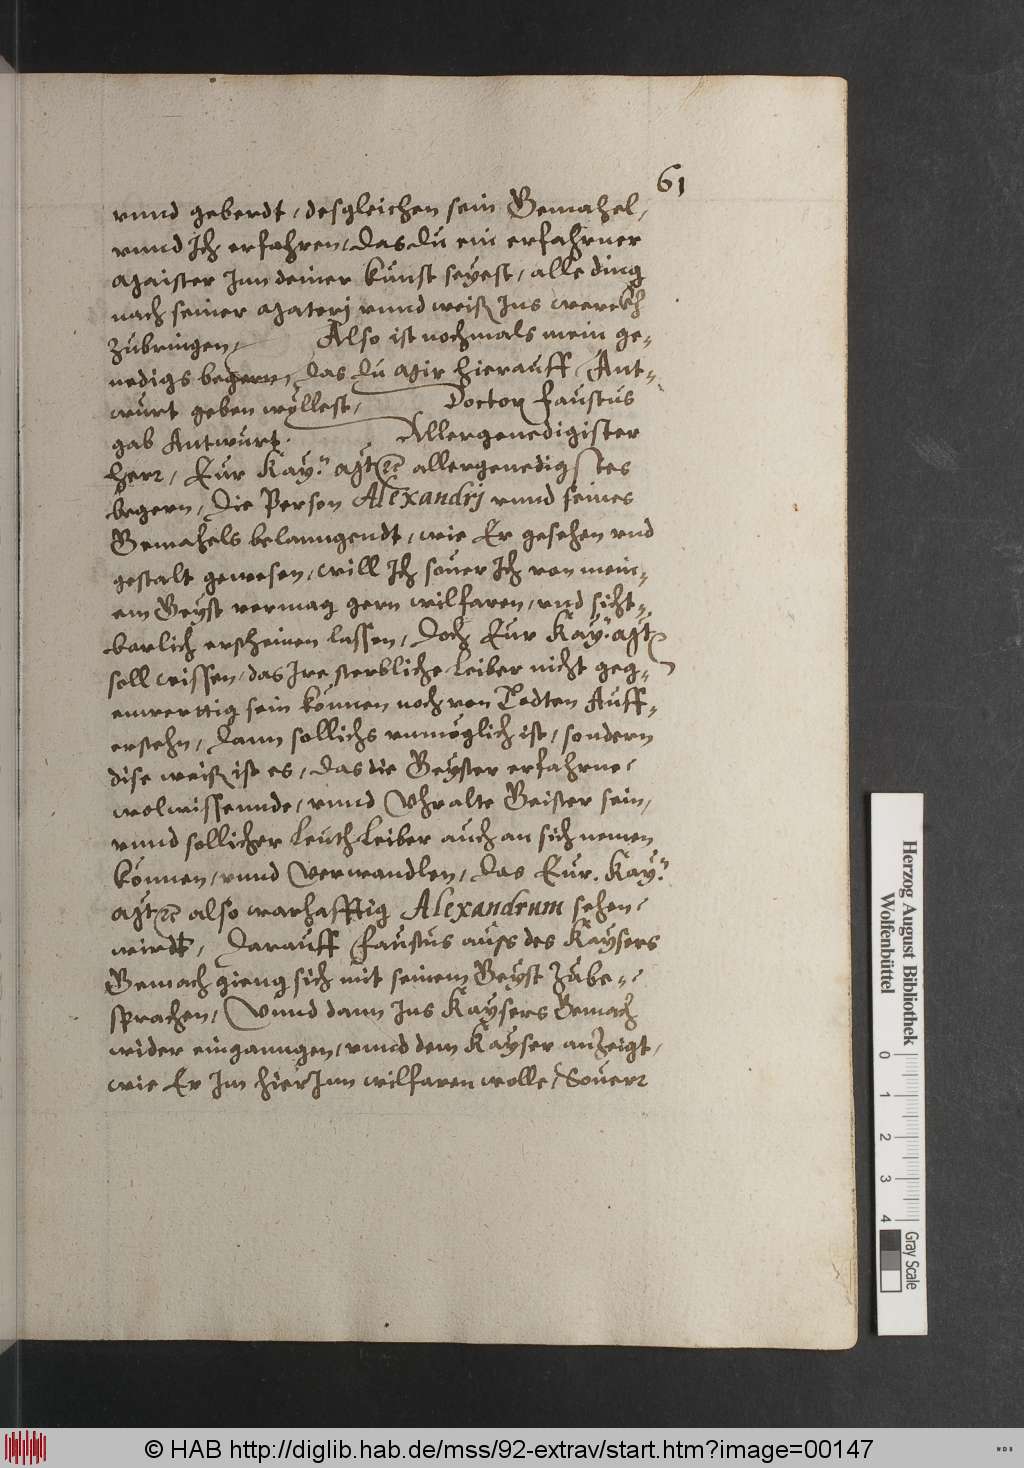 61
vnnd geberdt, desgleichen sein Gemahel,
vnnd Ich erfahren, das du ein erfahrner
Maister Inn deiner kunst seyest, alle ding
nach seiner Materj vnnd weiß Ins werckh
zubringen, Also ist nochmals mein ge-
nedigs begern, das du Mir hierauff Ant-
wurt geben wyllest, Doctor Faustus
gab Antwurt. Allergenedigister
herr, Eur Kay: Mt: allergenedigstes
begern, die Person Alexandrj vnnd seines
Gemahels belanngendt, wie Er gesehen vnd
gestalt gewesen, will Ich souer Ich von mein-
em Geyst vermag gern wilfaren, vnd sicht-
barlich erscheinen lassen, doch Eur Kay: Mt:
soll wissen, das Ire sterbliche Leiber nicht geg-
enwerttig sein können noch von Todten Auff-
erstehn, dann sollichs vnmöglich ist, sondern
dise weiß ist es, das die Geyster erfahrne
wolwissennde, vnnd Vhralte Geister sein,
vnnd sollicher Leuth Leiber auch an sich nemen
können, vnnd Verwandlen, das Eur. Kay:
Mt: also warhafftig Alexandrum sehen
wirdt, darauff Faustus auss des Kaysers
Gemach gieng sich mit seinem Geyst zube-
sprachen, Vnnd dann Ins Kaysers Gemach
wider einganngen, vnnd dem Kayser anzeigt,
wie Er Im hierInn wilfaren wolle, Souerr
Herzog August Bibliothek
Wolfenbüttel
0 1 2 3 4
Gray Scale
© HAB http://diglib.hab.de/mss/92-extrav/start.htm?image=00147